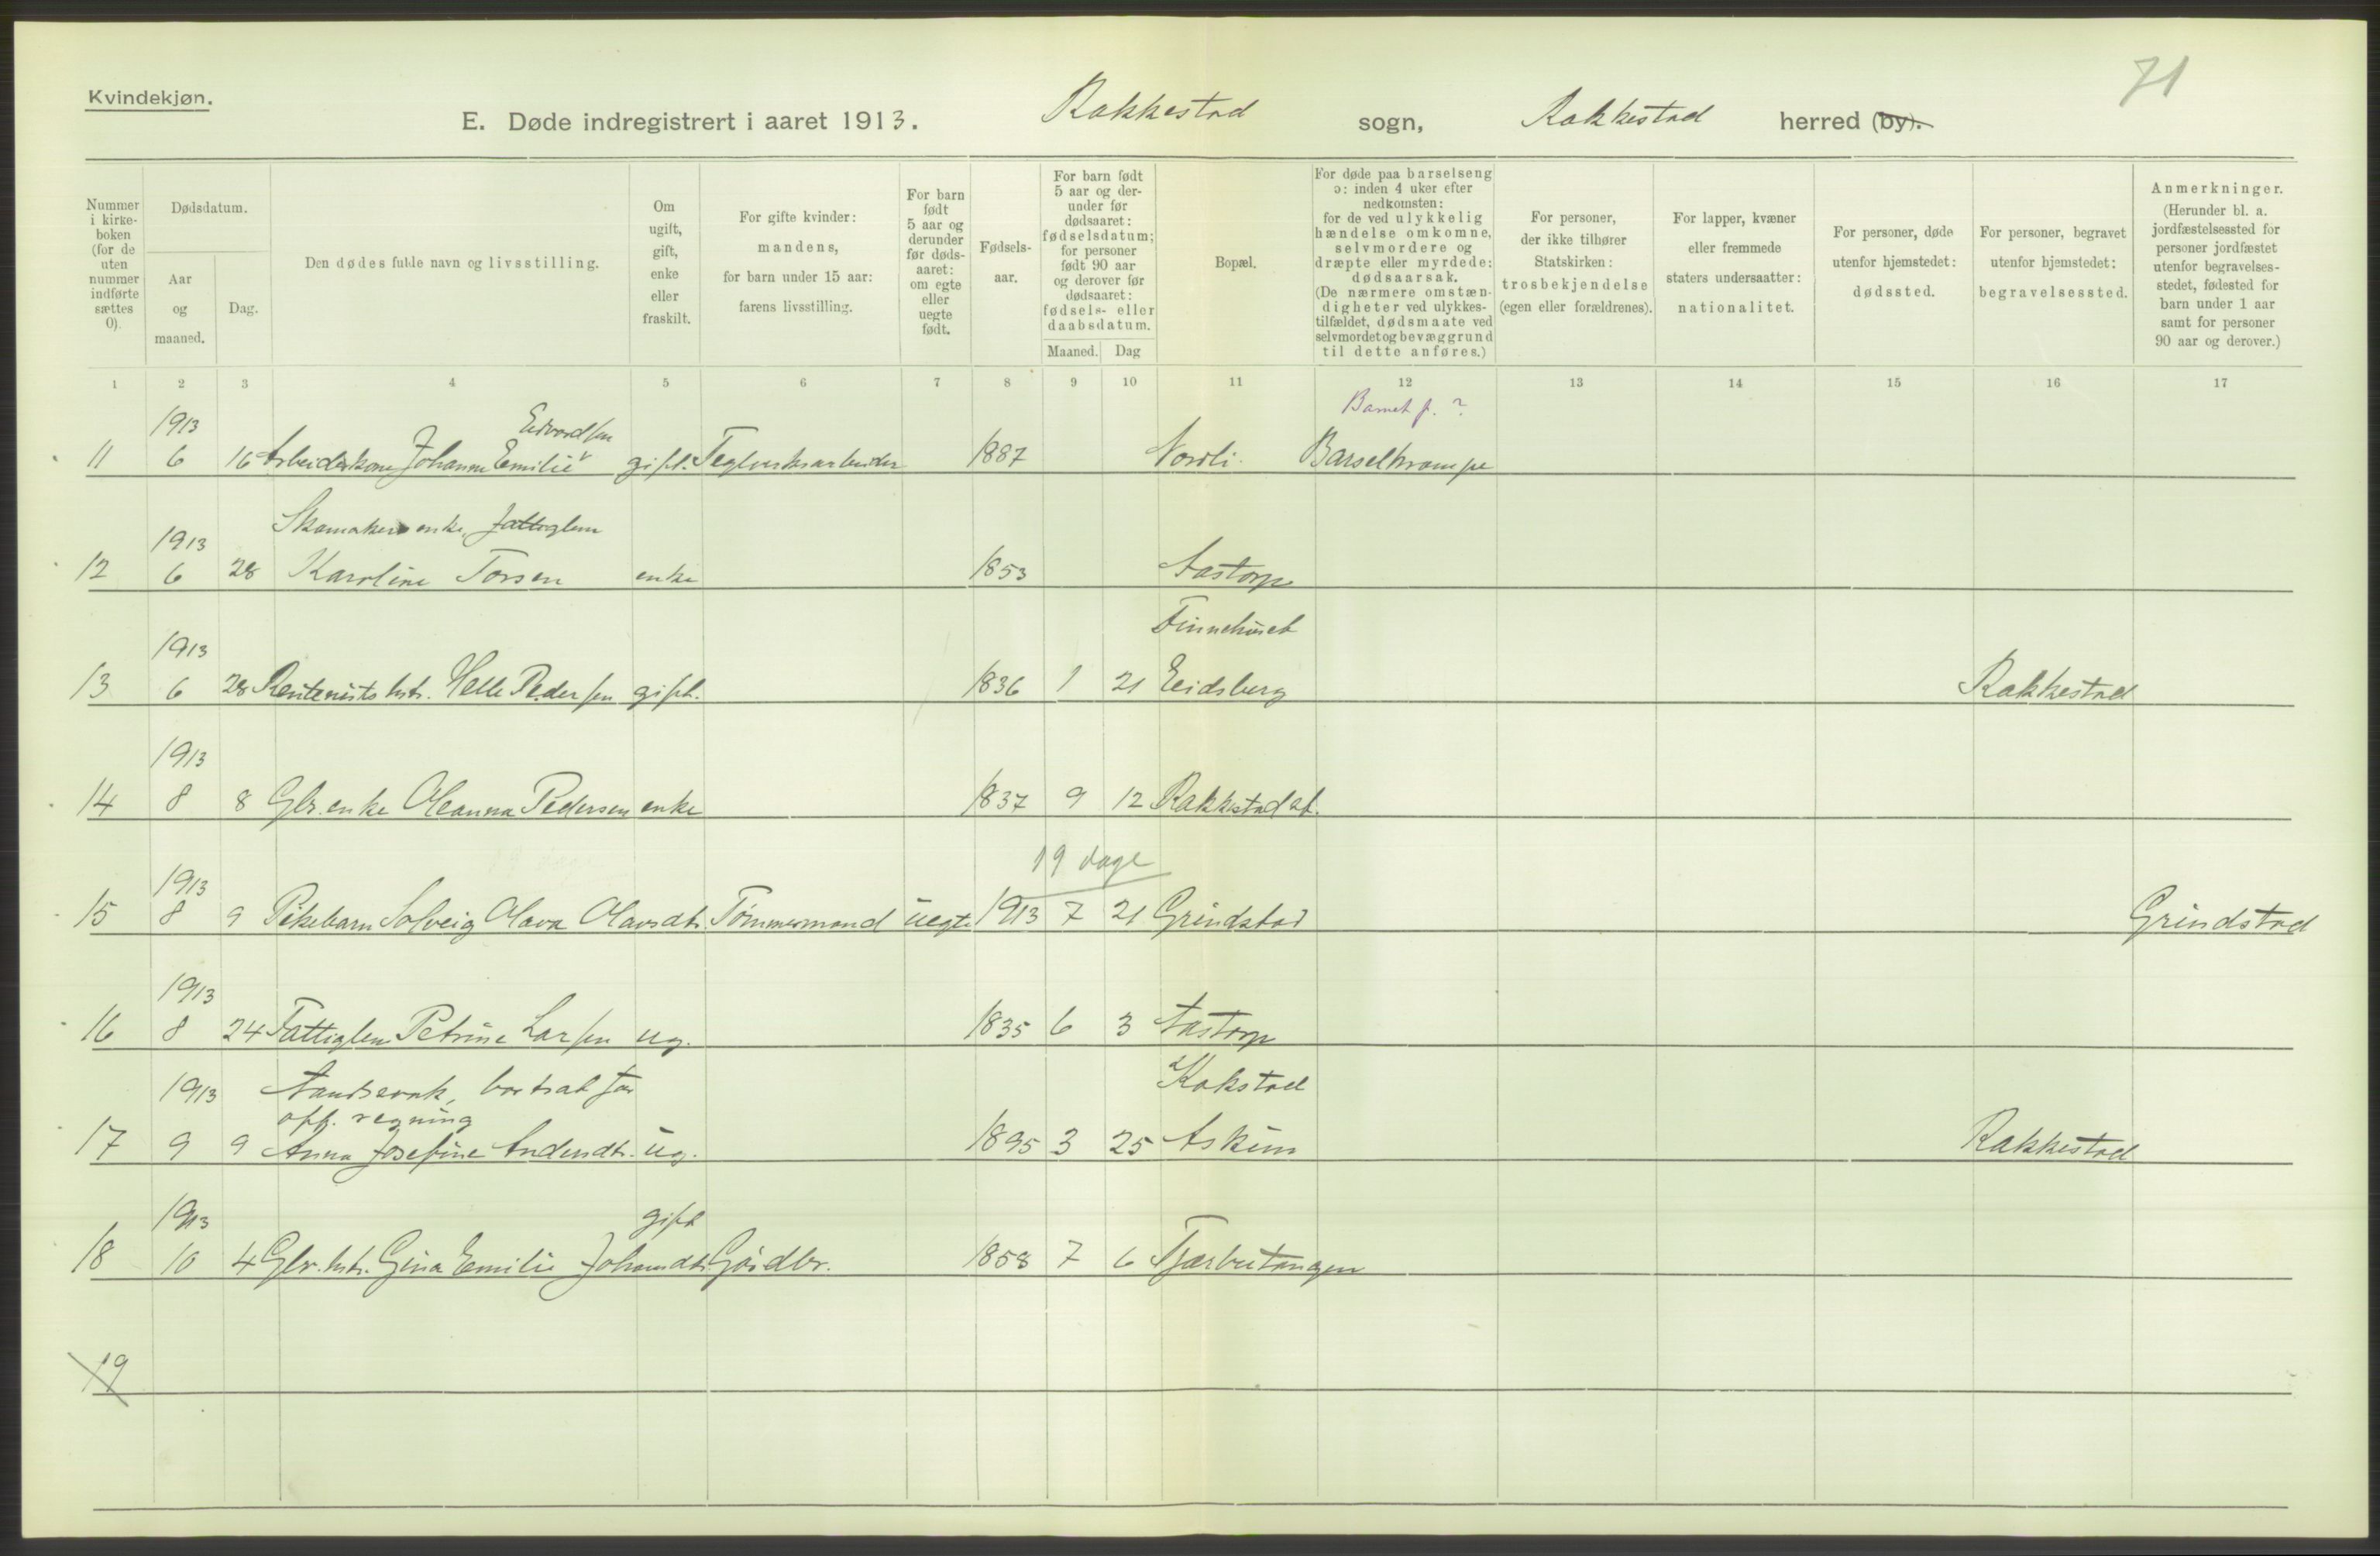 71
Kvindekjøn.
E. Døde indregistrert i aaret 1913. Rakkestad sogn, Rakkestad herred (by).
Nummer i kirkeboken (for de uten nummer indførte sættes 0).
Dødsdatum.
Aar og maaned.
Dag.
Den dødes fulde navn og livsstilling.
Om ugift, gift, enke eller fraskilt.
For gifte kvinder: mandens, for barn under 15 aar: farens livsstilling.
For barn født 5 aar og derunder før dødsaaret: om egte eller uegte født.
Fødselsaar.
For barn født 5 aar og derunder før dødsaaret: fødselsdatum; for personer født 90 aar og derover før dødsaaret: fødsels- eller daabsdatum.
Maaned. Dag
Bopæl.
For døde paa barselseng ɔ: inden 4 uker efter nedkomsten: for de ved ulykkelig hændelse omkomne, selvmordere og dræpte eller myrdede: dødsaarsak. (De nærmere omstændigheter ved ulykkestilfældet, dødsmaate ved selvmordet og bevæggrund til dette anføres.)
For personer, der ikke tilhører Statskirken: trosbekjendelse (egen eller forældrenes).
For lapper, kvæner eller fremmede staters undersaatter: nationalitet.
For personer, døde utenfor hjemstedet: dødssted.
For personer, begravet utenfor hjemstedet: begravelsessted.
Anmerkninger. (Herunder bl. a. jordfæstelsessted for personer jordfæstet utenfor begravelsesstedet, fødested for barn under 1 aar samt for personer 90 aar og derover.)
1 2 3 4 5 6 7 8 9 10 11 12 13 14 15 16 17
1913 Edvardsen Barnet f. ?
11 6 16 Arbeiderkone Johanne Emilie gift. Teglverksarbeider 1887 Nordli. Barselkrampe
1913 Skomakers enke, fattiglem
12 6 28 Karoline Torsen enke 1853 Aastorp
1913 Finnehuset
13 6 28 Rentenists hstr. Helle Pedersen gift. 1836 1 21 Eidsberg Rakkestad
1913
14 8 8 Gbr. enke Oleanna Pedersen enke 1837 9 12 Rakkestad st.
1913 19 dage
15 8 9 Pikebarn Solveig Olava Olavsdtr. Tømmermand uegte 1913 7 21 Grindstad Grindstad
1913
16 8 24 Fattiglem Petrine Larsen ug. 1835 6 3 Aastorp
1913 Aandssvak, bortsat for Kokstad
off. regning
17 9 9 Anna Josefine Andersdtr. ug. 1895 3 25 Askim Rakkestad
1913 gift
18 10 4 Gbr. hstr. Gina Emilie Johansdtr. Gårdbr. 1858 7 6 Tjærbutangen
19